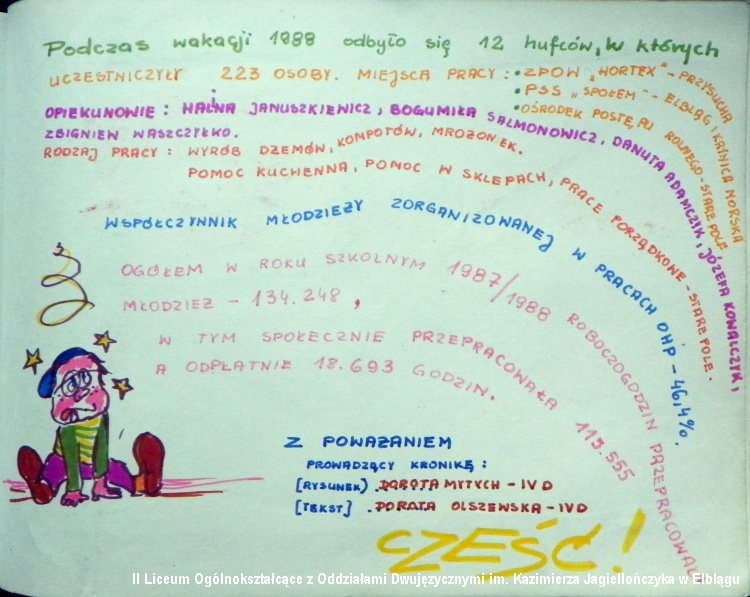 Podczas wakacji 1988 odbyło się 12 hufców, w których
UCZESTNICZYŁY 223 OSOBY. MIEJSCA PRACY : • ZPOW „HORTEX” - PRZYSUCHA
• PSS „SPOŁEM” - ELBLĄG i KRYNICA MORSKA
• OŚRODEK POSTĘPU ROLNEGO - STARE POLE
OPIEKUNOWIE : HALINA JANUSZKIEWICZ, BOGUMIŁA SALMONOWICZ, DANUTA ADAMCZYK, JÓZEFA KOWALCZYK,
ZBIGNIEW WASZCZYŁKO.
RODZAJ PRACY : WYRÓB DŻEMÓW, KOMPOTÓW, MROŻONEK.
POMOC KUCHENNA, POMOC W SKLEPACH, PRACE PORZĄDKOWE - STARE POLE.
WSPÓŁCZYNNIK MŁODZIEŻY ZORGANIZOWANEJ W PRACACH OHP - 46,4%.
OGÓŁEM W ROKU SZKOLNYM 1987/1988 ROBOCZOGODZIN PRZEPRACOWAŁA
MŁODZIEŻ - 134.248,
W TYM SPOŁECZNIE PRZEPRACOWAŁA 115.555
A ODPŁATNIE 18.693 GODZIN.
Z POWAŻANIEM
PROWADZĄCY KRONIKĘ :
[RYSUNEK) . DOROTA MYTYCH - IV D
[TEKST] . DOROTA OLSZEWSKA - IV D
CZEŚĆ!
II Liceum Ogólnokształcące z Oddziałami Dwujęzycznymi im. Kazimierza Jagiellończyka w Elblągu